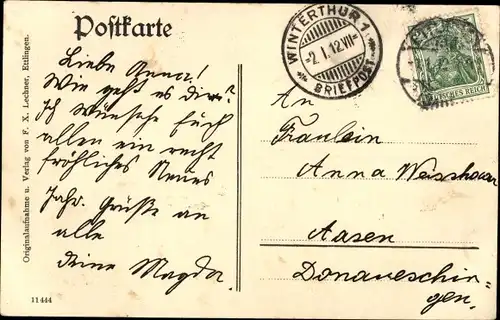 Postkarte
WINTERTHUR 1
-2.I.12.VII-
BRIEFPOST
DEUTSCHES REICH
Originalaufnahme u. Verlag von F. X. Lechner, Ettlingen.
Liebe Anna!
Wie geht es dir?
Ich wünsche Euch
allen ein recht
fröhliches Neues
Jahr. Grüße an
alle
deine Magda.
An
Fräulein
Anna
Aasen
Donaueschin-
gen.
11444